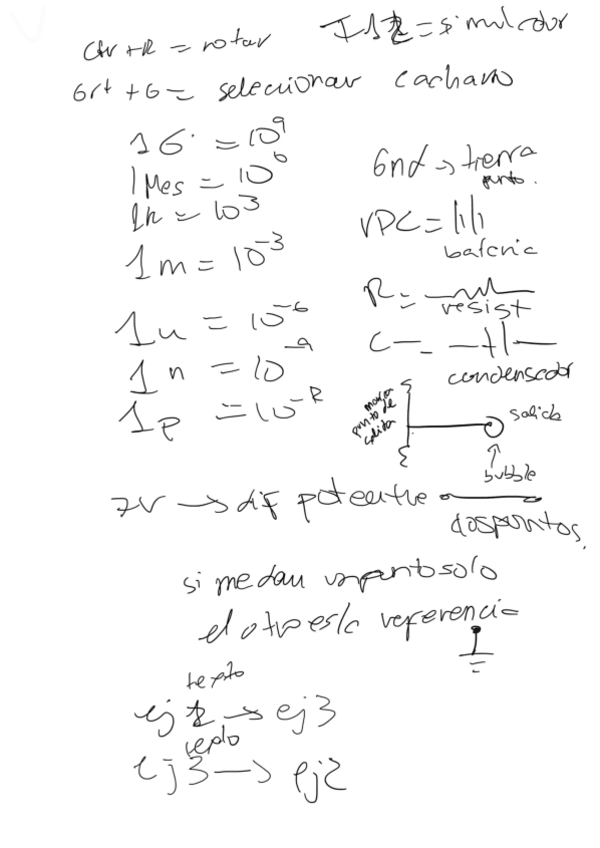 Ctr + R = rotar
= simulador
Crt + G = seleccionar cacharro
1 G = 10^9
1 Meg = 10^6
1k = 10^3
1m = 10^-3
1u = 10^-6
1n = 10^-9
1p = 10^-12
Gnd → tierra
punto.
VDC =
bateria
R =
resist
C =
condensador
punto de
salida
salida
bubble
7V → dif potentre
dos puntos.
si me dan un punto solo
el otro es la referencia
texto
ej 2 → ej3
texto
ej3 → ej2